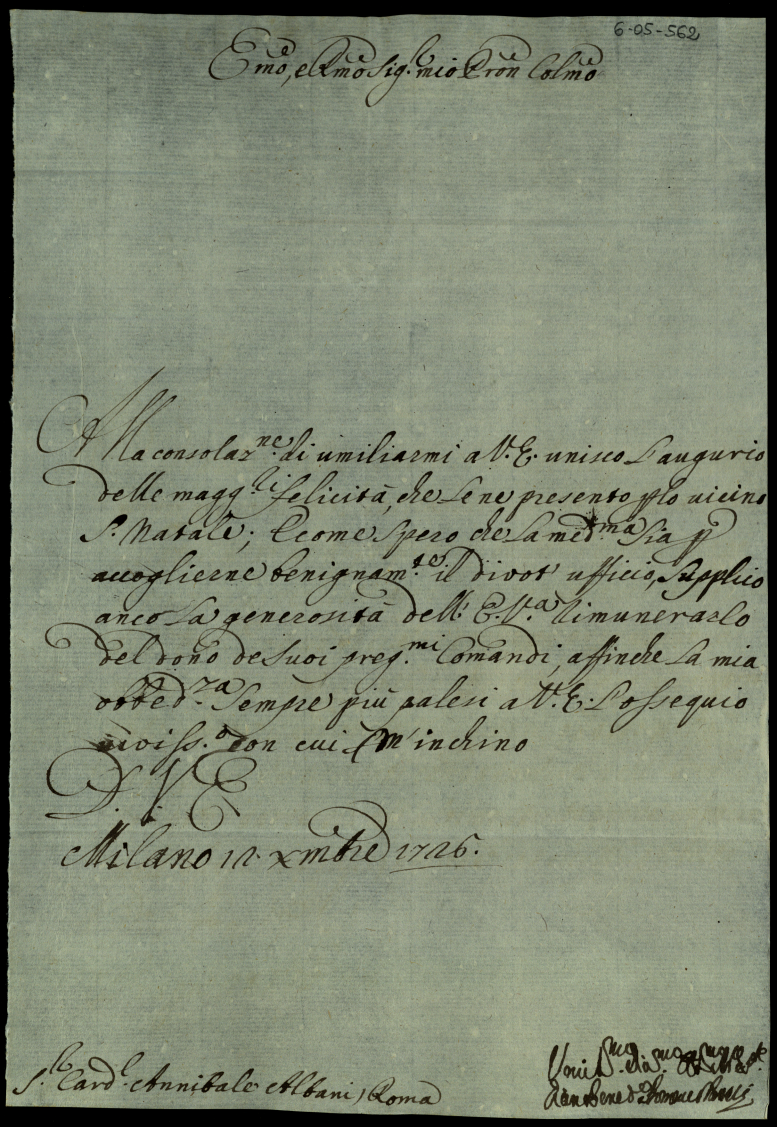 6-05-562
Emo, e Rmo Sig.r mio Pron Colmo
Alla consolaz.ne di umiliarmi a V. E. unisco l'augurio
delle magg.ri felicità, che le ne presento p lo vicino
S. Natale; E come spero che la med.ma sia p
accoglierne benignam.te il divot' ufficio, supplico
anco la generosità dell' E. V.a rimunerarlo
del dono de suoi preg.mi Comandi, affinche la mia
obbed.za sempre più palesi a V. E. l'ossequio
con cui m'inchino
D. V. E.
Milano 12. Xmbre 1726.
S.r Card.l Annibale Albani, Roma